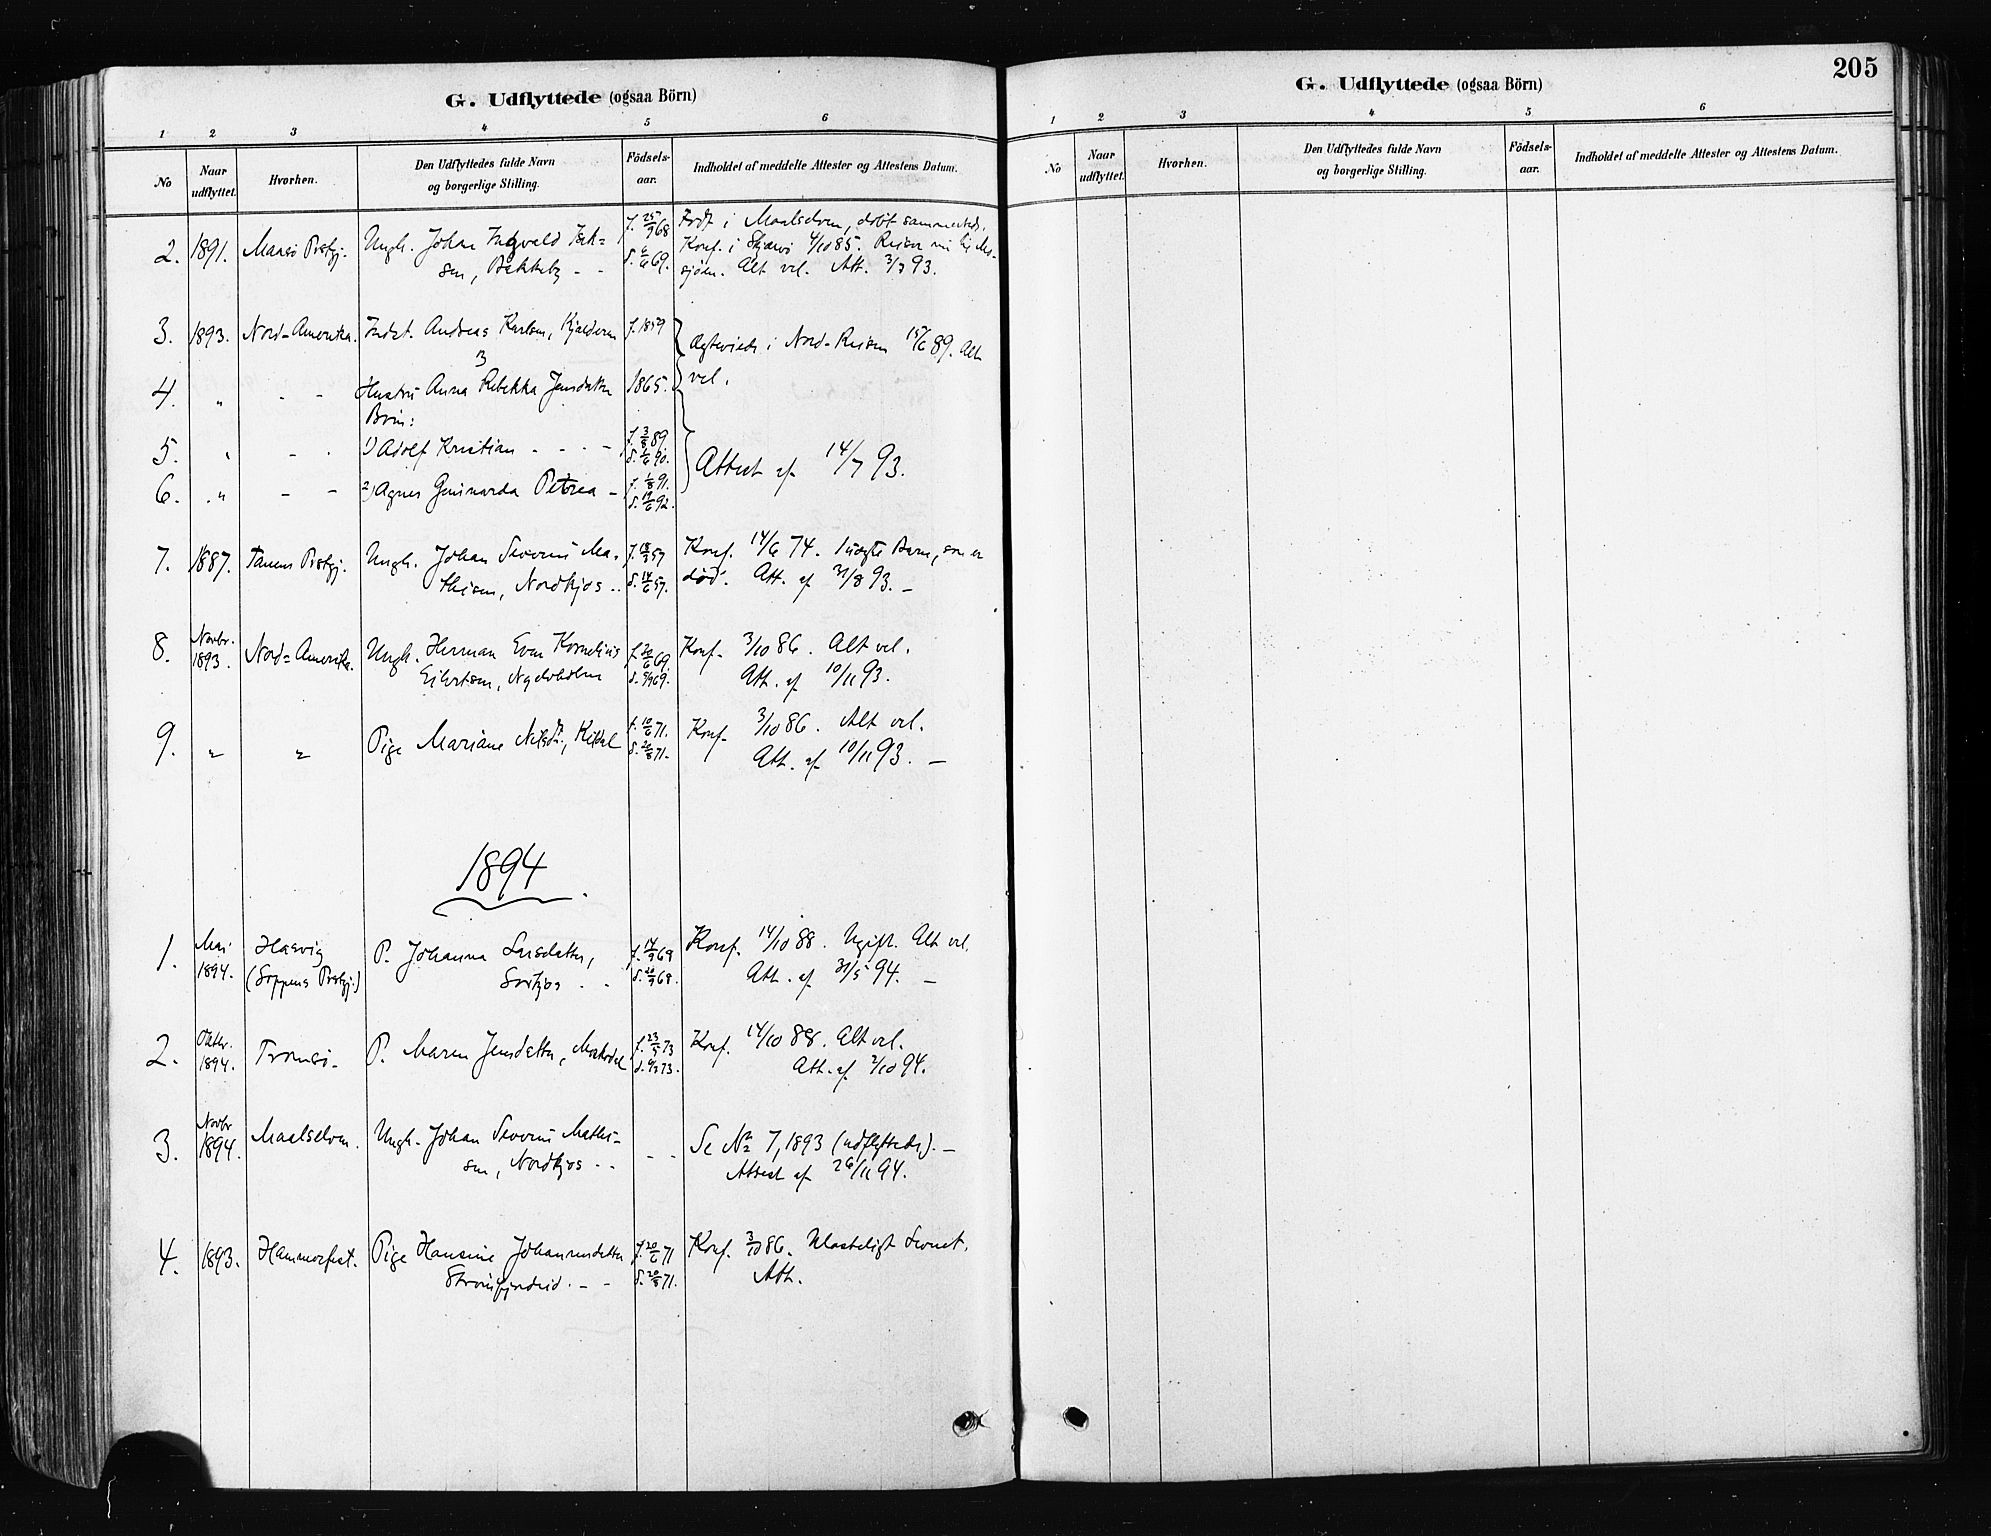 G. Udflyttede (ogsaa Börn)
1 2 3 4 5 6
No
Naar udflyttet.
Hvorhen.
Den Udflyttedes fulde Navn og borgerlige Stilling.
Födsels-aar.
Indholdet af meddelte Attester og Attestens Datum.
2. 1891. Maasö Prstgj. Ungk. Johan Ingvald Isak= f. 25/9 68 Født i Maalselven, døbt sammesteds.
sen, Bakkeby - - d. 6/6 69. Konf. i Skjervö 4/10 85.
Alt vel. Att. 3/7 93.
3. 1893. Nord=Amerika. Indst. Andreas Karlsen, Kjelderen f. 1859 Ægteviede i Nord-Reisen 15/6 89. Alt
vel.
4. " - - Hustru Anna Rebekka Jensdatter 1865.
Börn:
5. " - - 1) Adolf Kristian - - - - f. 3/8 89. d. 1/6 90. Attest af 14/7 93.
6. " - - 2) Agnes Petrea - f. 1/8 91. d. 19/6 92.
7. 1887. Tanens Prstgj. Ungk. Johan Severin Ma- f. 18/3 57 Konf. 14/6 74. 1 uægte Barn, som er
thisen, Nordkjos - - d. 14/6 57. död. Att. af 31/8 93. -
8. Novbr. 1893. Nord=Amerika. Ungk. Herman Evan Kornelius f. 20/6 69. Konf. 3/10 86. Alt vel.
Eilertsen, d. 5/9 69. Att. af 10/11 93.
9. " " Pige Mariane Nilsdtr., Kildal f. 10/6 71. Konf. 3/10 86. Alt vel.
d. 20/8 71. Att. af 10/11 93. -
1894
1. Mai 1894. Hasvig P. Johanna Larsdatter, f. 14/9 68 Konf. 14/10 88. Ugift. Alt vel.
(Loppens Prstgj.) Sørkjos - - d. 20/9 68. Att. af 31/5 94. -
2. Oktbr. 1894. Tromsö. P. Maren Jensdatter, f. 23/5 73 Konf. 14/10 88. Alt vel.
d. 6/7 73. Att. af 2/10 94.
3. Novbr 1894. Maalselven. Ungk. Johan Severin Mathi- - - Se No 7, 1893 (udflyttede). -
sen, Nordkjos - - Attest af 26/11 94.
4. 1893. Hammerfest. Pige Hansine Johannesdatter f. 20/6 71 Konf. 3/10 86. Ulasteligt Levnet.
Straumfjordeid. - - d. 20/8 71. Att.
G. Udflyttede (ogsaa Börn)
205
1 2 3 4 5 6
No
Naar udflyttet.
Hvorhen.
Den Udflyttedes fulde Navn og borgerlige Stilling.
Födsels-aar.
Indholdet af meddelte Attester og Attestens Datum.